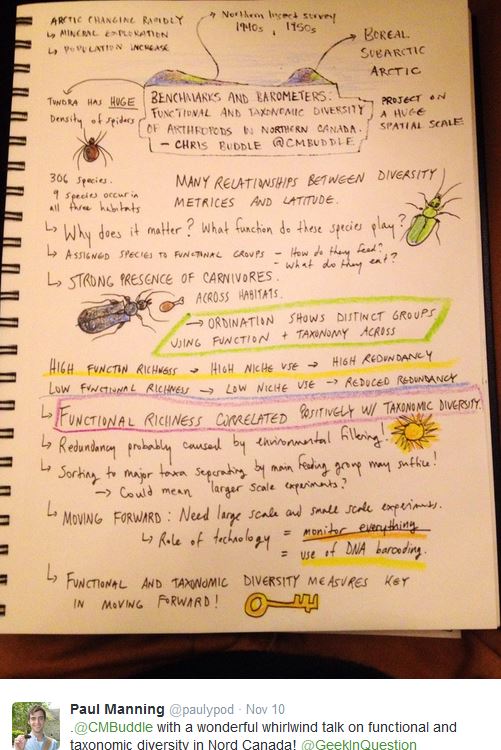 ARCTIC CHANGING RAPIDLY
↳ MINERAL EXPLORATION
↳ POPULATION INCREASE
↳ Northern Insect survey
1940s, 1950s
↳ BOREAL
SUBARCTIC
ARCTIC
TUNDRA HAS HUGE
Density of spiders
BENCHMARKS AND BAROMETERS:
FUNCTIONAL AND TAXONOMIC DIVERSITY
OF ARTHROPODS IN NORTHERN CANADA.
– CHRIS BUDDLE @CMBUDDLE
PROJECT ON
A HUGE
SPATIAL SCALE
306 species.
9 species occur in
all three habitats
MANY RELATIONSHIPS BETWEEN DIVERSITY
METRICES AND LATITUDE.
↳ Why does it matter? What function do these species play?
↳ ASSIGNED SPECIES TO FUNCTIONAL GROUPS – How do they feed?
– What do they eat?
↳ STRONG PRESENCE OF CARNIVORES.
ACROSS HABITATS.
→ ORDINATION SHOWS DISTINCT GROUPS
USING FUNCTION + TAXONOMY ACROSS
HIGH FUNCTIN RICHNESS → HIGH NICHE USE → HIGH REDUNDANCY
LOW FUNCTIONAL RICHNESS → LOW NICHE USE → REDUCED REDUNDANCY
↳ FUNCTIONAL RICHNESS CORRELATED POSITIVELY W/ TAXONOMIC DIVERSITY.
↳ Redundancy probably caused by environmental filtering!
↳ Sorting to major taxa seperating by main feeding group may suffice!
→ Could mean larger scale experiments?
↳ MOVING FORWARD: Need large scale and small scale experiments.
↳ Role of technology = monitor everything
= use of DNA barcoding.
↳ FUNCTIONAL AND TAXONOMIC DIVERSITY MEASURES KEY
IN MOVING FORWARD!
Paul Manning @paulypod · Nov 10
.@CMBuddle with a wonderful whirlwind talk on functional and
taxonomic diversity in Nord Canada! @GeekInQuestion